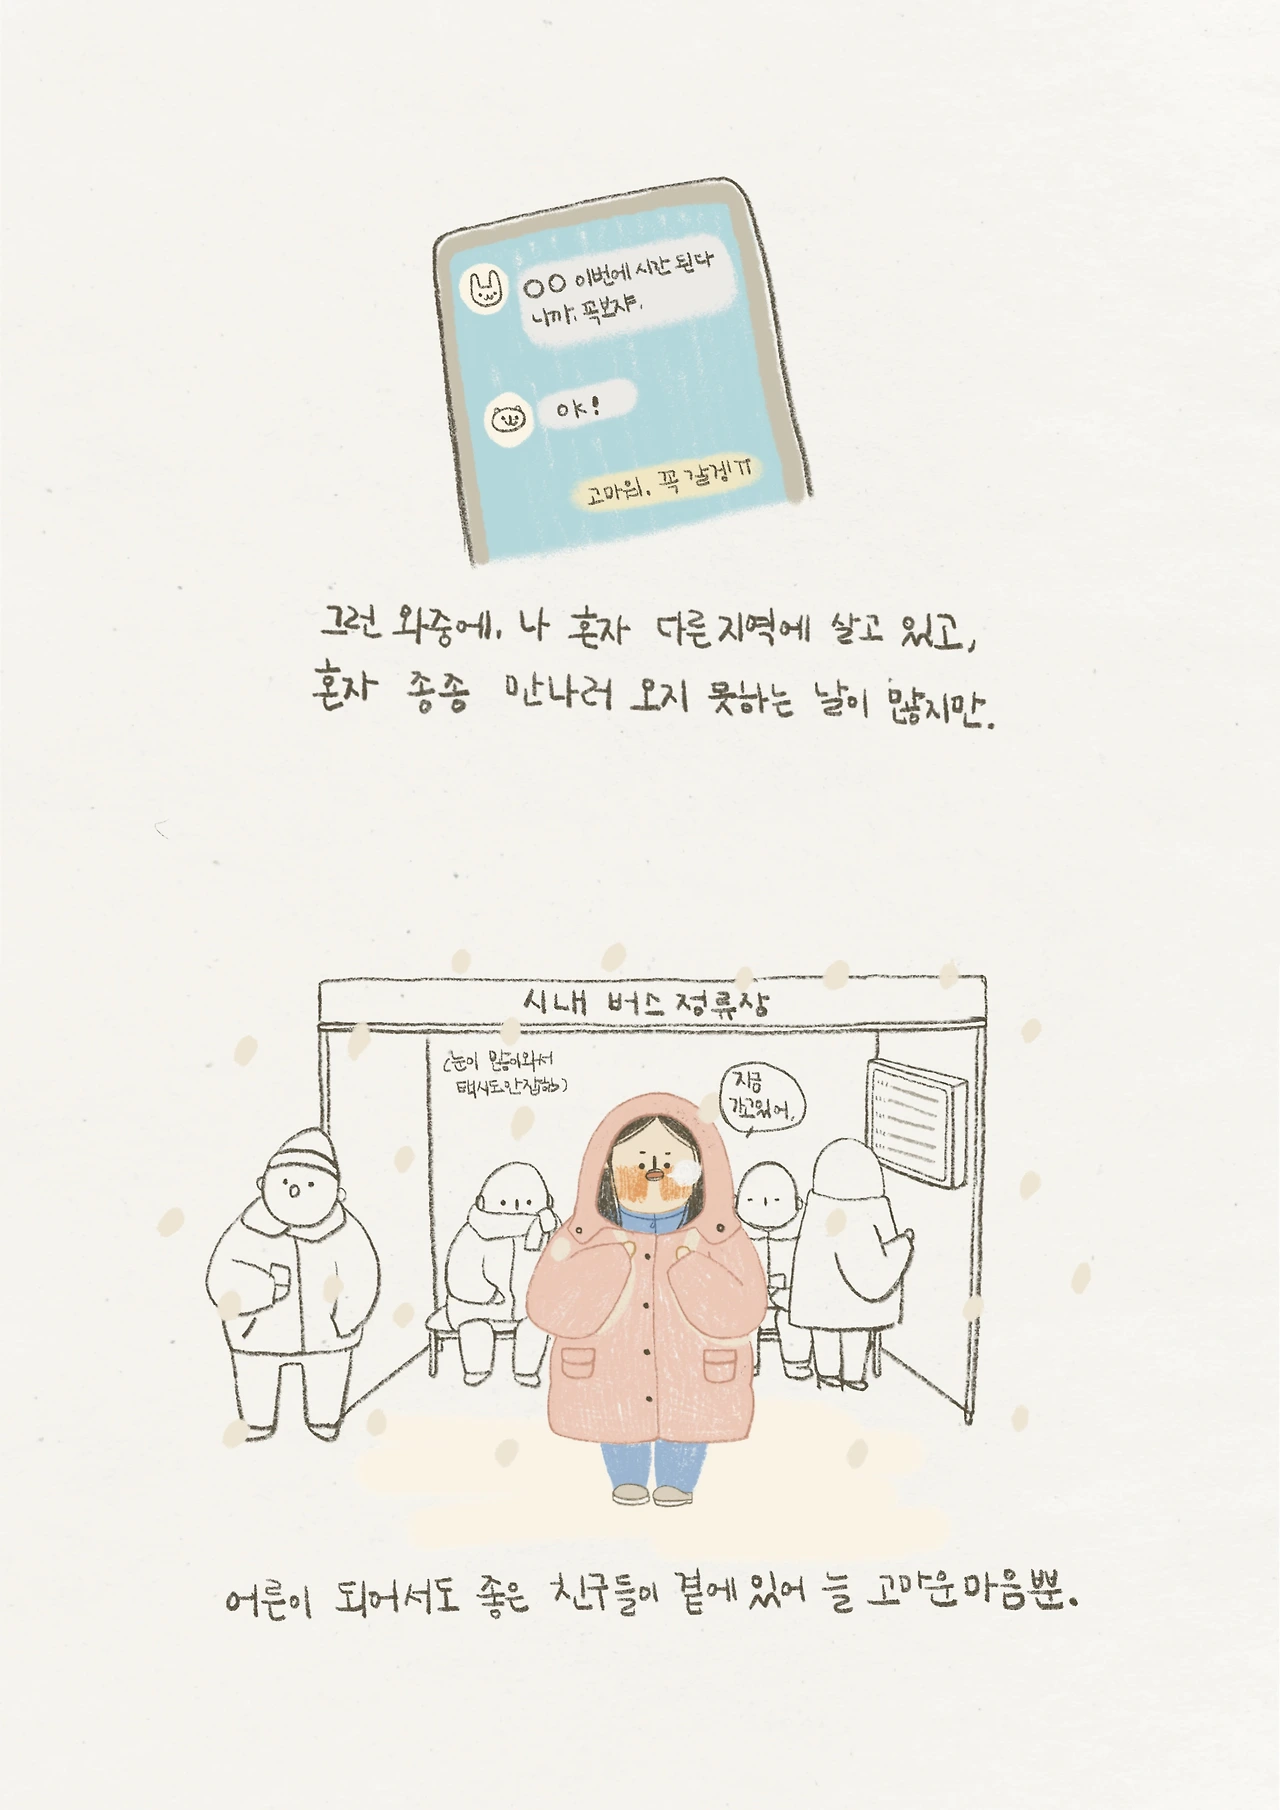 ○○ 이번에 시간 된다
니까, 꼭보쟈.
야!
고마워, 꼭 갈겡ㅠ
그런 와중에, 나 혼자 다른 지역에 살고 있고,
혼자 종종 만나러 오지 못하는 날이 많지만.
시내 버스 정류장
(눈이 많이와서
택시도안잡혀)
지금
가고있어.
어른이 되어서도 좋은 친구들이 곁에 있어 늘 고마운 마음뿐.